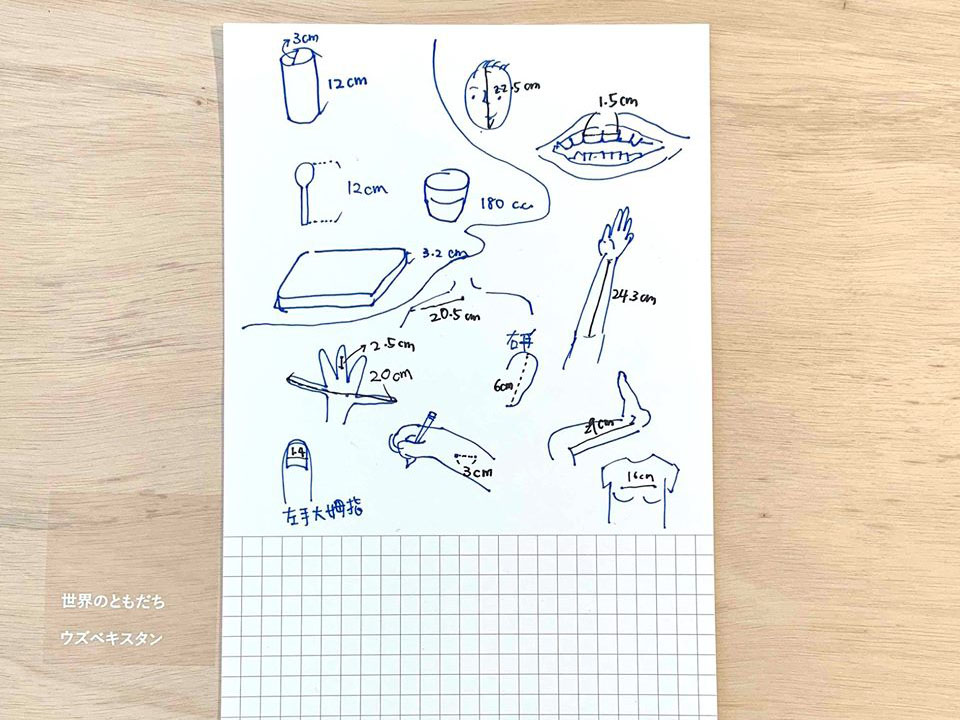 3cm
12cm
22.5cm
1.5cm
12cm
180 c.c.
3.2 cm
24.3cm
20.5 cm
右耳
2.5cm
20cm
6cm
3cm
1.4
16cm
左手大姆指
世界のともだち
ウズベキスタン